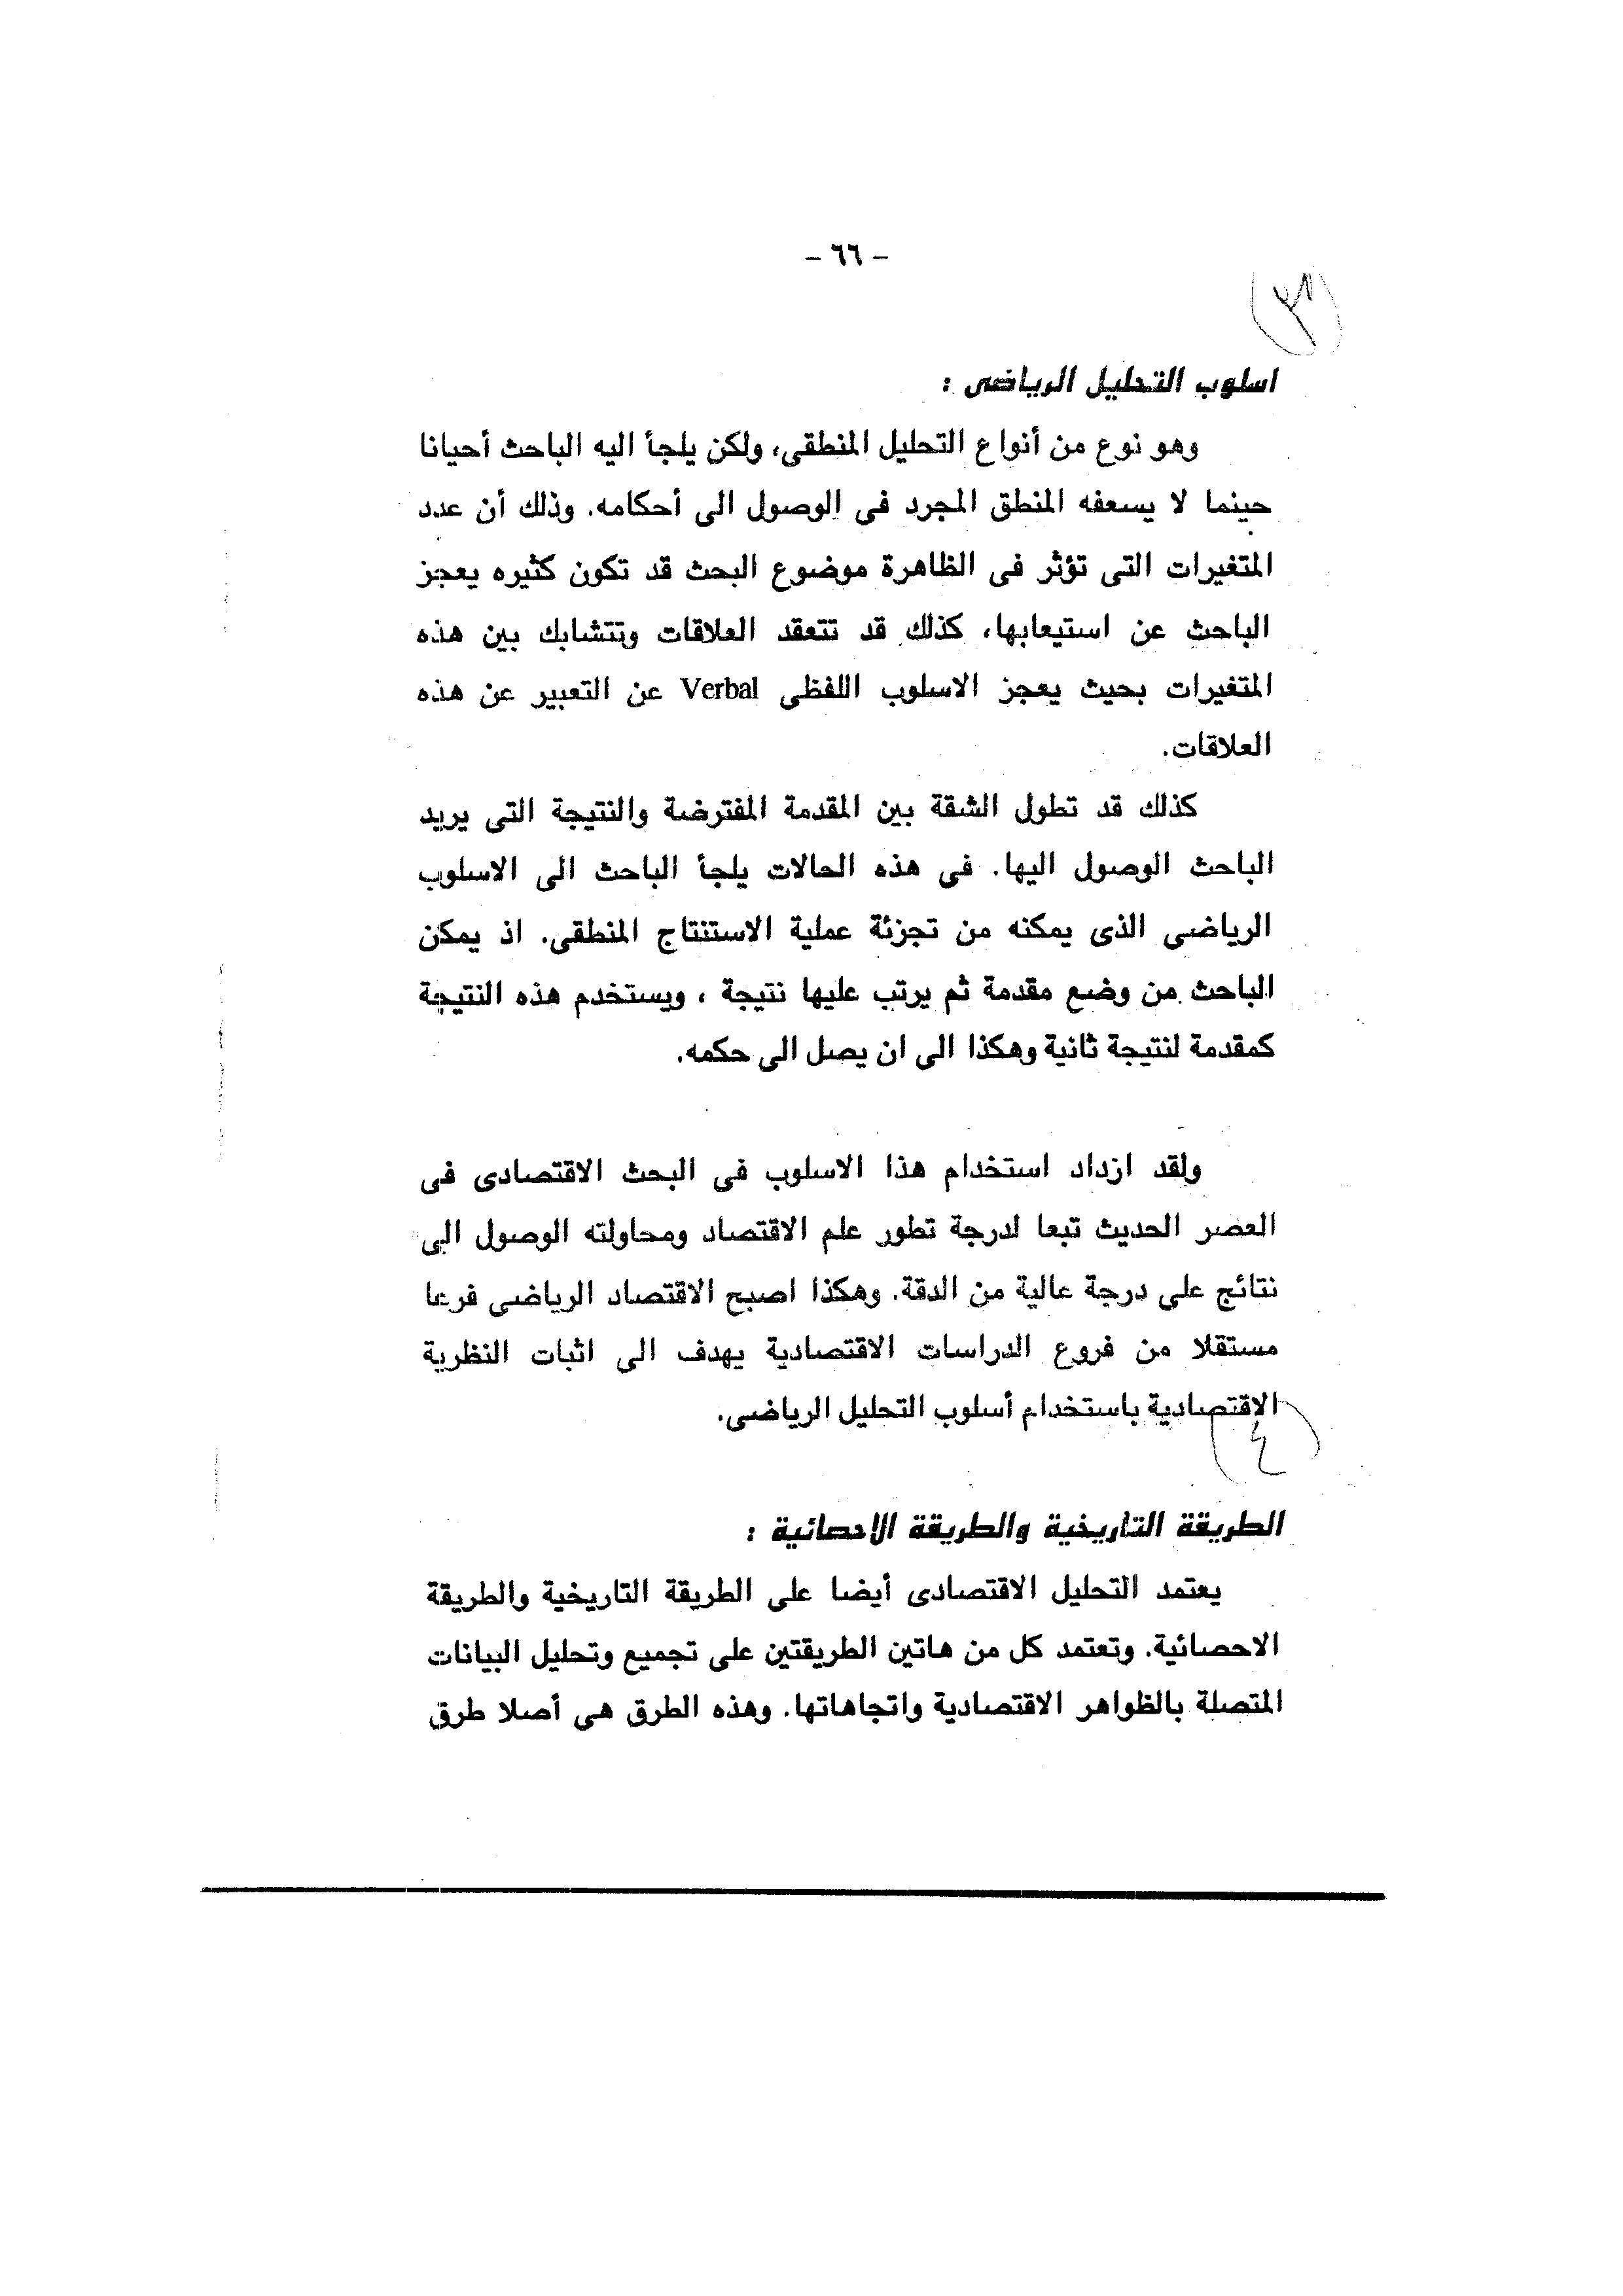 - ٦٦ -
(٣)
اسلوب التحليل الرياضى :
وهو نوع من أنواع التحليل المنطقى، ولكن يلجأ اليه الباحث أحيانا
حينما لا يسعفه المنطق المجرد فى الوصول الى أحكامه. وذلك أن عدد
المتغيرات التى تؤثر فى الظاهرة موضوع البحث قد تكون كثيره يعجز
الباحث عن استيعابها، كذلك قد تتعقد العلاقات وتتشابك بين هذه
المتغيرات بحيث يعجز الاسلوب اللفظى Verbal عن التعبير عن هذه
العلاقات.
كذلك قد تطول الشقة بين المقدمة المفترضة والنتيجة التى يريد
الباحث الوصول اليها. فى هذه الحالات يلجأ الباحث الى الاسلوب
الرياضى الذى يمكنه من تجزئة عملية الاستنتاج المنطقى. اذ يمكن
الباحث من وضع مقدمة ثم يرتب عليها نتيجة ، ويستخدم هذه النتيجة
كمقدمة لنتيجة ثانية وهكذا الى ان يصل الى حكمه.
ولقد ازداد استخدام هذا الاسلوب فى البحث الاقتصادى فى
العصر الحديث تبعا لدرجة تطور علم الاقتصاد ومحاولته الوصول الى
نتائج على درجة عالية من الدقة. وهكذا اصبح الاقتصاد الرياضى فرعا
مستقلا من فروع الدراسات الاقتصادية يهدف الى اثبات النظرية
الاقتصادية باستخدام أسلوب التحليل الرياضى.
(٤)
الطريقة التاريخية والطريقة الاحصائية :
يعتمد التحليل الاقتصادى أيضا على الطريقة التاريخية والطريقة
الاحصائية. وتعتمد كل من هاتين الطريقتين على تجميع وتحليل البيانات
المتصلة بالظواهر الاقتصادية واتجاهاتها. وهذه الطرق هى أصلا طرق